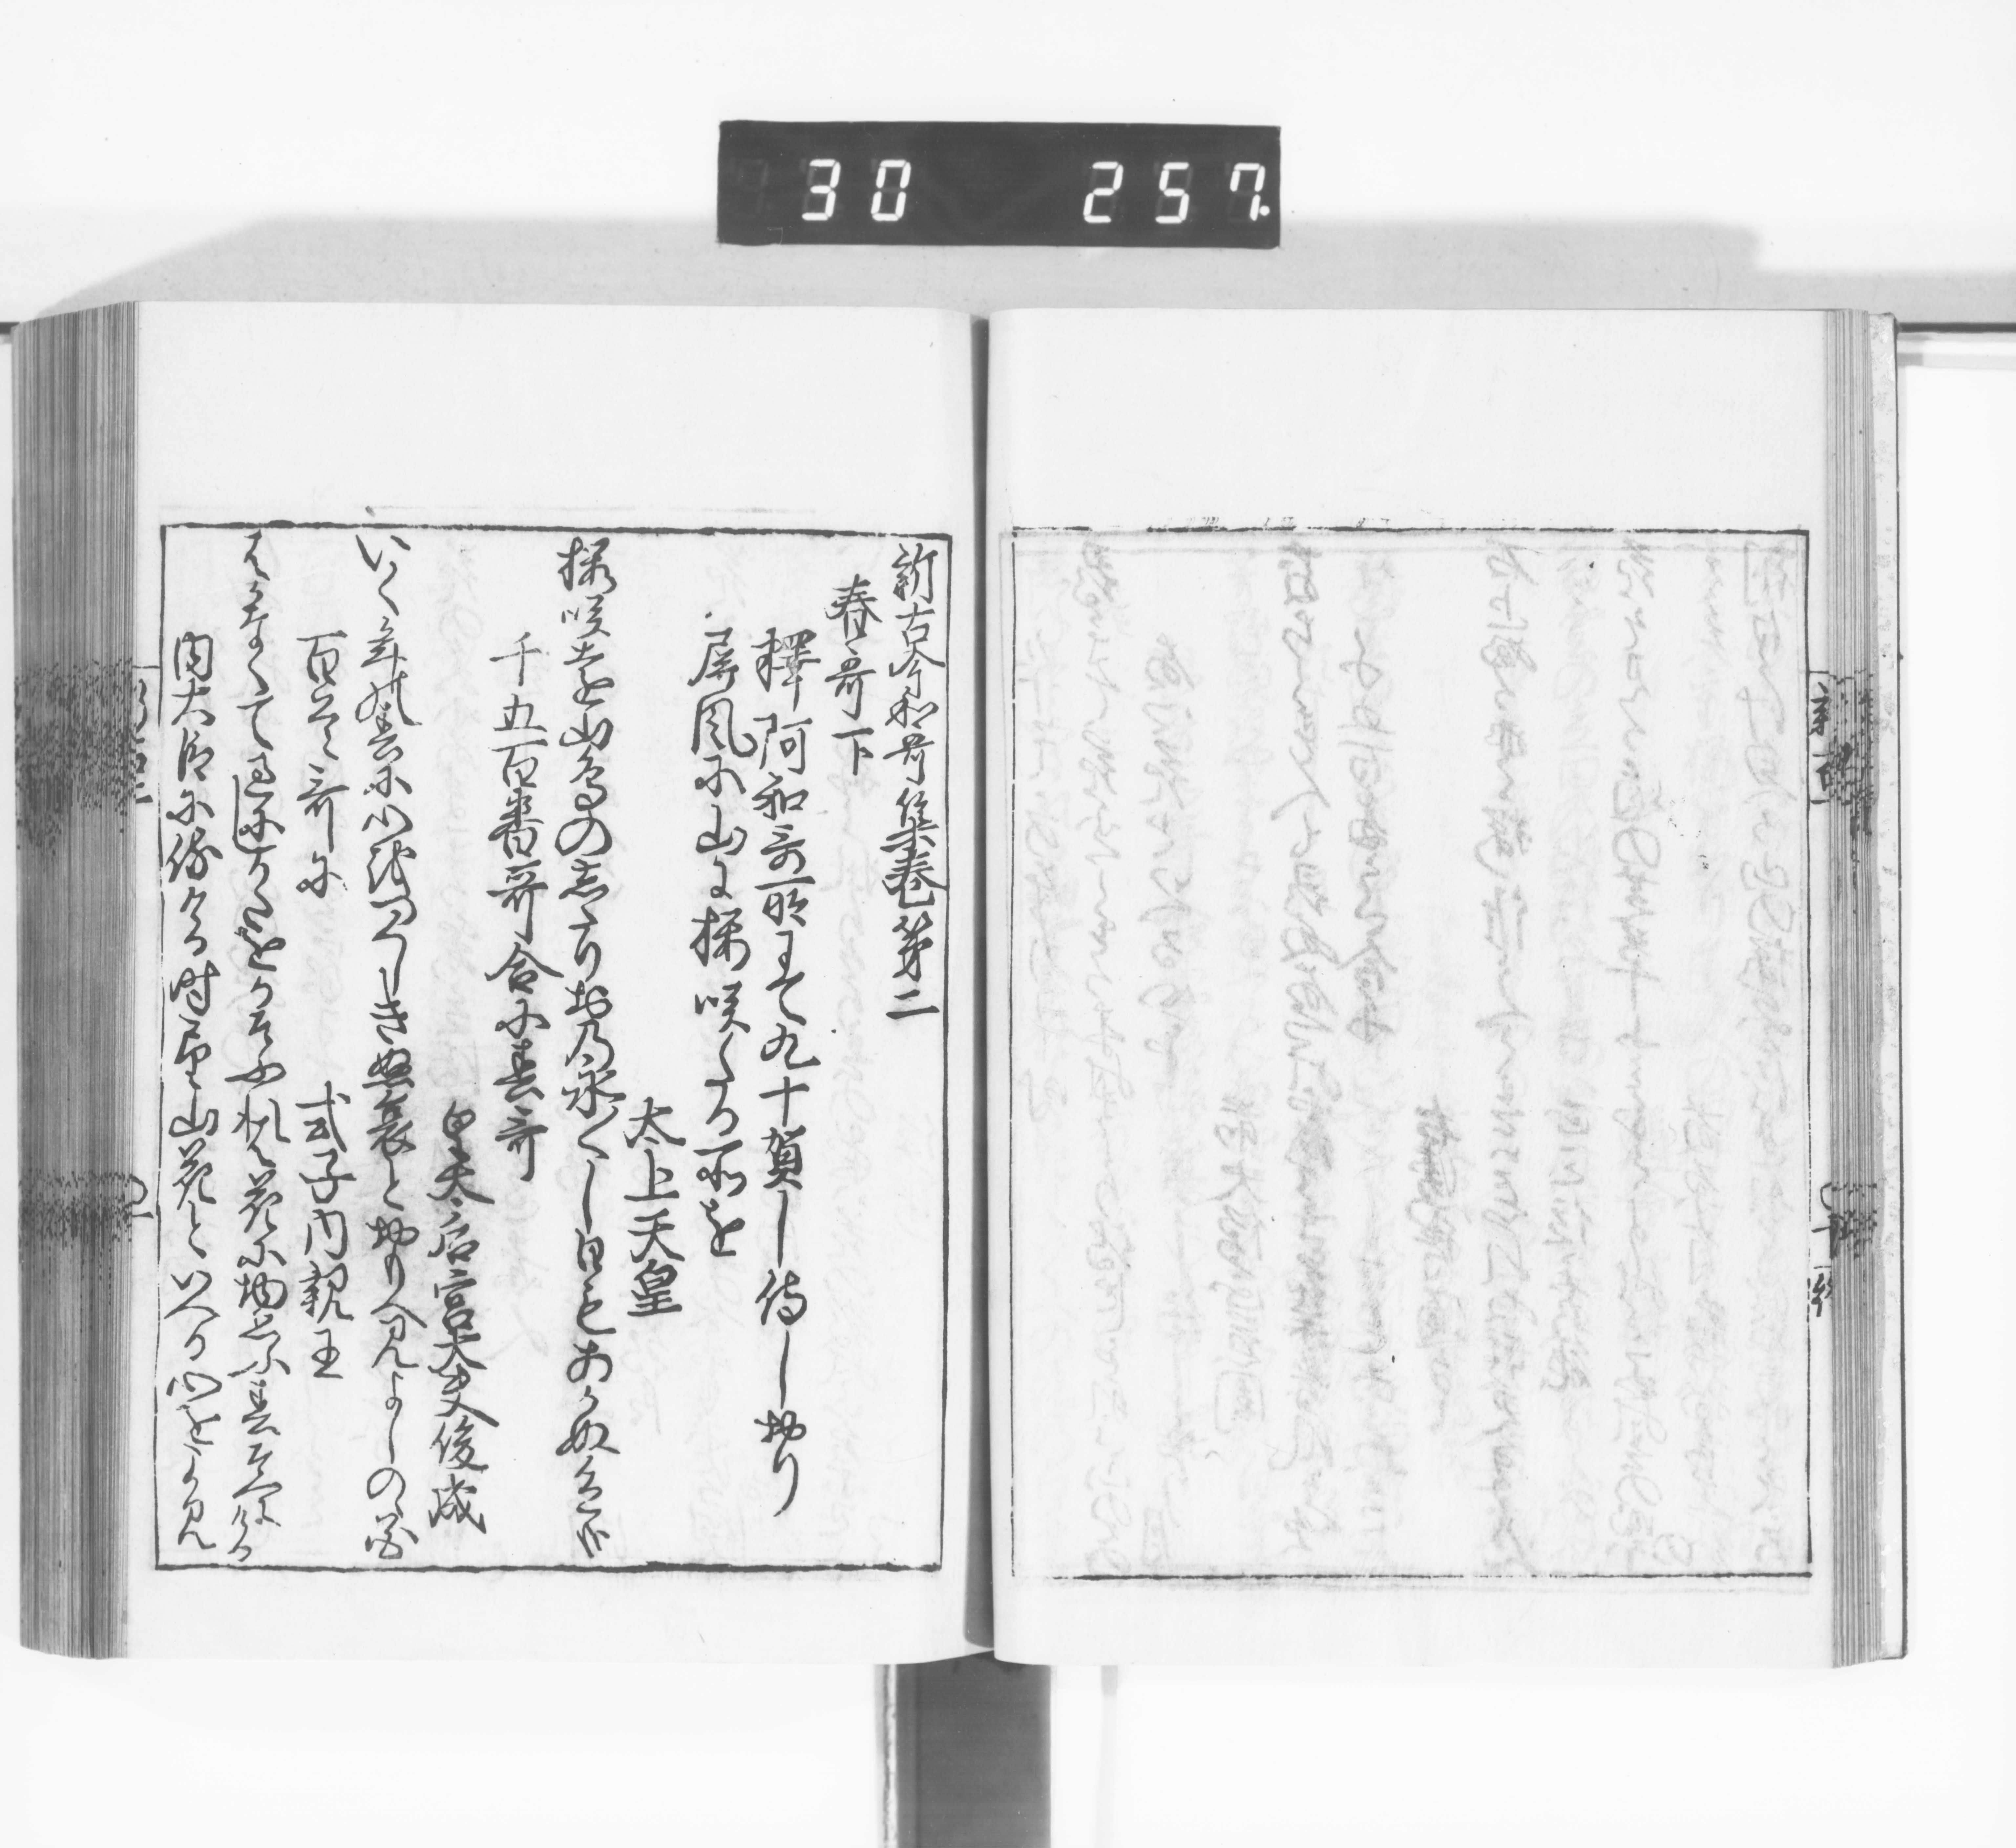 30 257.
新古今和哥集巻第二
春哥下
釋阿和哥所にて九十賀し侍し おり
屏風に山に桜咲たる所を
太上天皇
桜咲とを山鳥のしたりおの永〱し日もあかぬ色かな
千五百番哥合に春哥
皇太后宮大夫俊成
いく年の春に心をつくしきぬ哀とおもへみよしのゝ花
百首哥に
式子内親王
はかなくて過にしかたをかそふれは花に物思ふ春そへにける
内大臣に侍ける時望山花といへる心をよみ